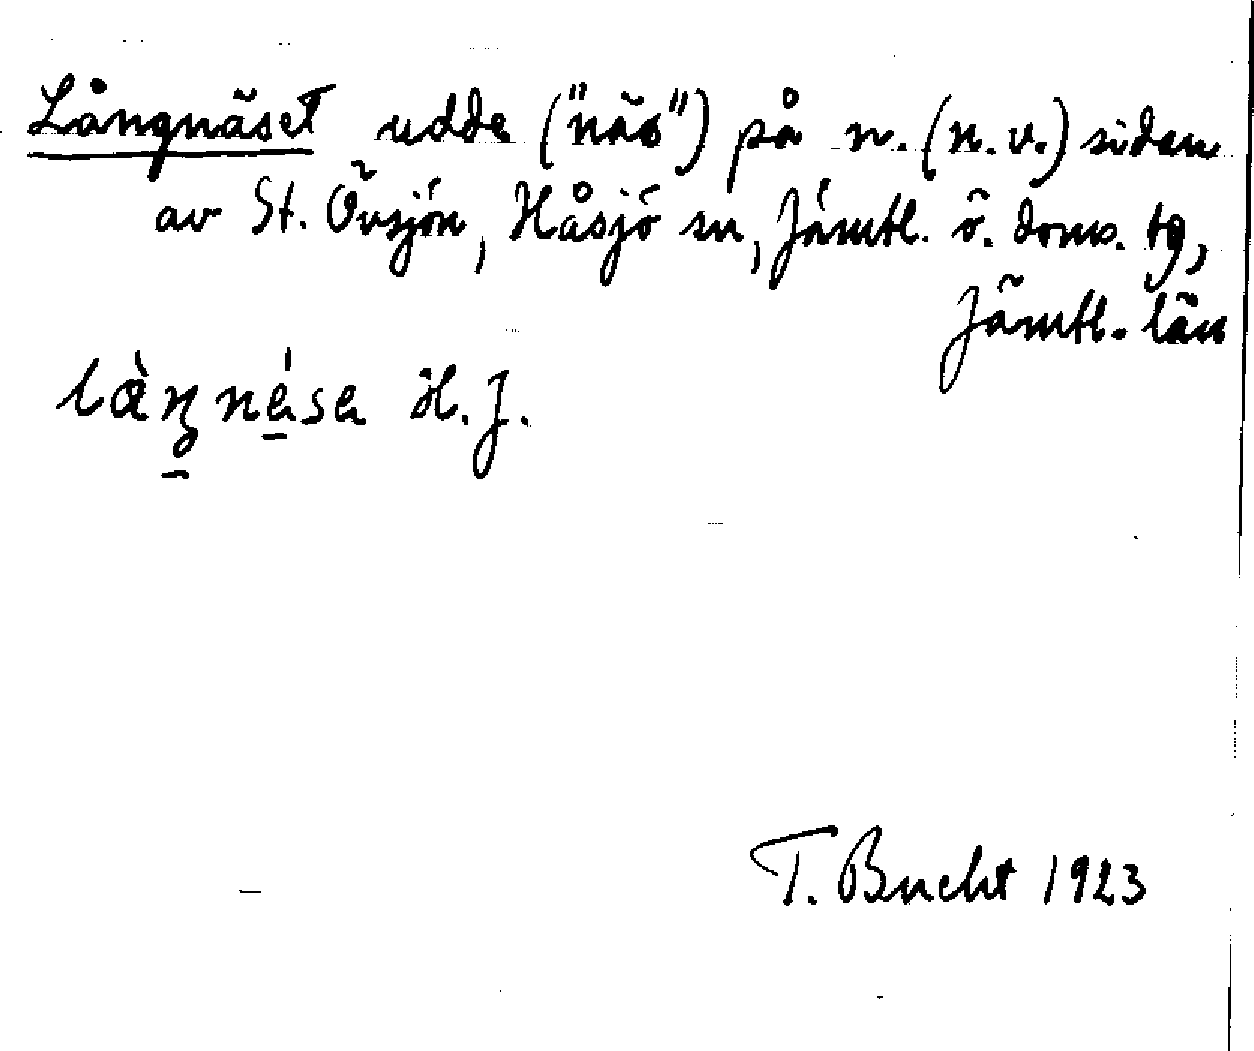 Långnäset udde ("näs") på n. (n.v.) sidan
av St. Övsjön, Håsjö sn, Jämtl. ö. doms. tg,
Jämtl. län
H. J.
T. Bucht 1923